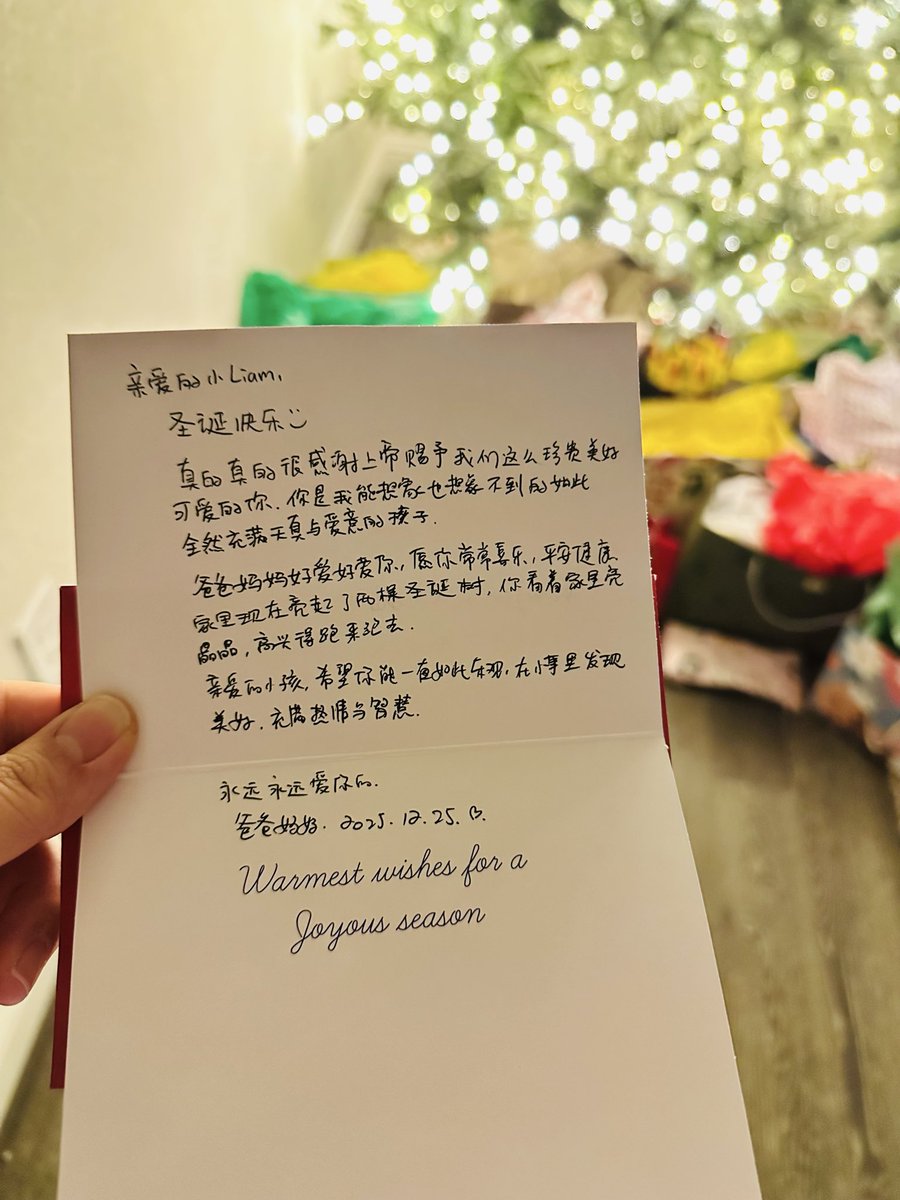 亲爱的小Liam,
圣诞快乐
真的真的很感谢上帝赐予我们这么珍贵美好
可爱的你. 你是我能想象也想象不到的如此
全然充满天真与爱意的孩子.
爸爸妈妈好爱好爱你, 愿你常常喜乐, 平安健康
家里现在亮起了两棵圣诞树, 你看着家里亮
晶晶, 高兴得跑来跑去.
亲爱的小孩, 希望你能一直如此乐观, 在小事里发现
美好. 充满热情与智慧.
永远永远爱你的.
爸爸妈妈. 2025. 12. 25.
Warmest wishes for a
Joyous season